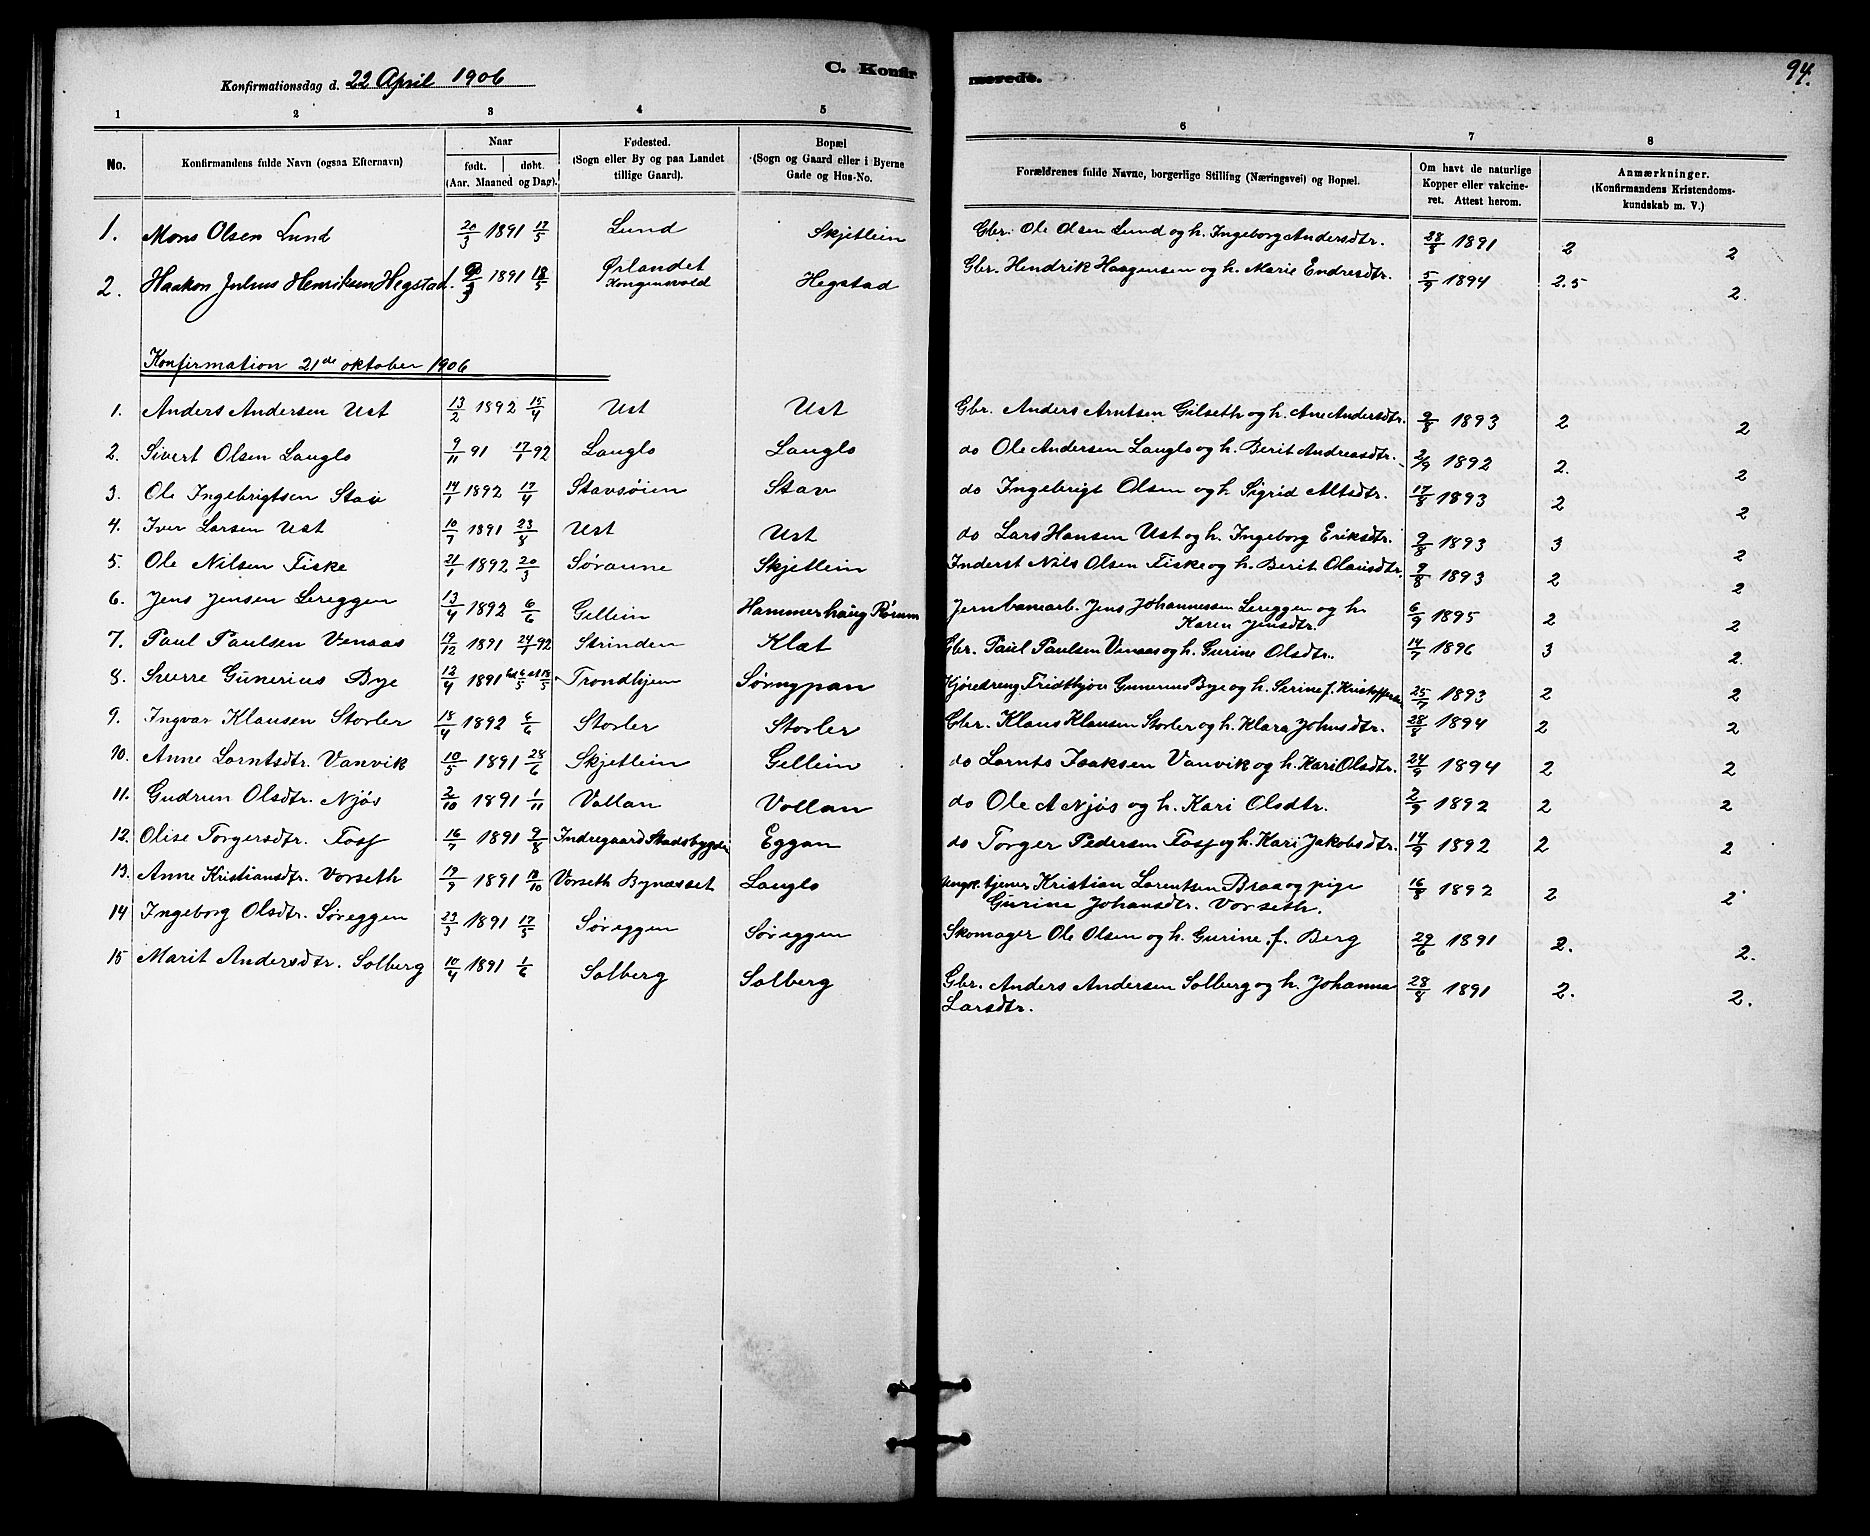 C. Konfirmerede.
94.
Konfirmationsdag d. 22 April 1906
1 2 3 4 5 6 7 8
No. Konfirmandens fulde Navn (ogsaa Efternavn) Naar født. døbt. (Aar. Maaned og Dag). Fødested. (Sogn eller By og paa Landet tillige Gaard). Bopæl (Sogn og Gaard eller i Byerne Gade og Hus-No. Forældrenes fulde Navne, borgerlige Stilling (Næringsvei) og Bopæl. Om havt de naturlige Kopper eller vakcineret. Attest herom. Anmærkninger. (Konfirmandens Kristendomskundskab m. V.)
1. Mons Olsen Lund 20/3 1891 17/5 Lund Skjetlein Gbr. Ole Olsen Lund og h. Ingeborg Andersdtr. 28/8 1891 2 2
2. Haakon Julius Henriksen Hegstad. 1891 18/5 Ørlandet Kongensvold Hegstad Gbr. Hendrik Haagensen og h. Marie Endresdtr. 5/9 1894 2.5 2.
Konfirmation 21de oktober 1906
1. Anders Andersen Ust 13/2 1892 15/4 Ust Ust Gbr. Anders Arntsen Gilseth og h. Ane Andersdtr. 9/8 1893 2 2
2. Sivert Olsen Langlo 9/11 91 17/1 92 Langlo Langlo do Ole Andersen Langlo og h. Berit Andreasdtr. 2/9 1892 2. 2
3. Ole Ingebrigtsen Stav 14/1 1892 17/4 Stavsøien Stav do Ingebrigt Olsen og h. Sigrid 17/8 1893 2 2
4. Iver Larsen Ust 10/7 1891 23/8 Ust Ust do Lars Hansen Ust og h. Ingeborg Eriksdtr. 9/8 1893 3 2
5. Ole Nilsen Fiske 21/1 1892 20/3 Søraune Skjetlein Inderst Nils Olsen Fiske og h. Berit Olausdtr. 9/8 1893 2 2
6. Jens Jensen Lereggen 13/4 1892 6/6 Gellein Hammerhaug Jernbanearb. Jens Johannessen Lereggen og h. 6/9 1895 2 2
Karen Jensdtr.
7. Paul Paulsen Venaas 19/12 1891 24/1 92 Strinden Klæt Gbr. Paul Paulsen Venaas og h. Gurine Olsdtr. 14/7 1896 3 2.
8. Sverre Gunerius Bye 12/4 1891 Trondhjem Sørnypan Kjøredreng Fridthjov Gunerius Bye og h. Serine f. 25/7 1893 2 2
9. Ingvar Klausen Storler 18/4 1892 6/6 Storler Storler Gbr. Klaus Klausen Storler og h. Klara Johnsdtr. 28/8 1894 2 2
10. Anne Lorntsdtr. Vanvik 10/5 1891 28/6 Skjetlein Gellein do Lornts Isaksen Vanvik og h. Kari Olsdtr. 24/9 1894 2 2
11. Gudrun Olsdtr. Njøs 2/10 1891 1/11 Vollan Vollan do Ole A Njøs og h. Kari Olsdtr. 2/9 1892 2 2
12. Olise Torgersdtr. Foss 16/7 1891 9/8 Indregaard Stadsbygden Eggan do Torger Pedersen Foss og h. Kari Jakobsdtr. 14/9 1892 2 2
13. Anne Kristiansdtr. Vorseth 19/9 1891 18/10 Vorseth Bynæsset Langlo tjener Kristian Lorentsen Braa og pige 16/8 1892 2 2
Gurine Johansdtr. Vorseth.
14 Ingeborg Olsdtr. Søreggen 23/3 1891 17/5 Søreggen Søreggen Skomager Ole Olsen og h. Gurine f. Berg 29/6 1891 2. 2.
15 Marit Andersdtr. Solberg 10/4 1891 1/6 Solberg Solberg Gbr. Anders Andersen Solberg og h. Johanna 28/8 1891 2. 2.
Larsdtr.